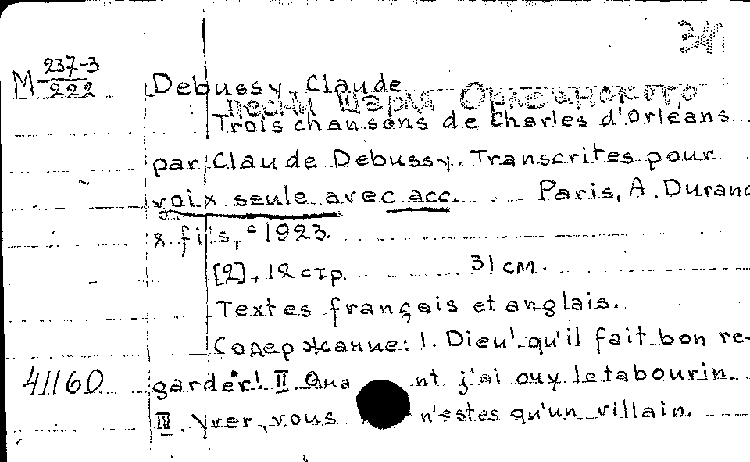 341
M 237-3
222
Debussy, Claude
песни Шарля Орлеанского
Trois chansons de Charles d'Orléans
par Claude Debussy. Transcrites pour
voix seule avec acc. Paris, A. Durand
& fils, c1923.
[2], 12 стр. 31 см.
Textes français et anglais.
Содержание: I. Dieu! qu'il fait bon re-
41160 garder! II Qua nt j'ai ouy le tabourin.
III. Yver, vous n'estes qu'un villain.